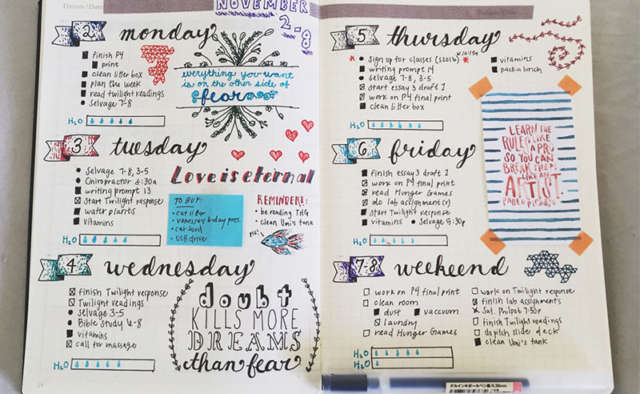 NOVEMBER
2-8
2 monday
finish P4
print
clean litter box
plan the week
read twilight readings
Selvage 7-8
H2O
everything you want
is on the other side of
fear
3 tuesday
Selvage 7-8, 3-5
Chiropractor 6:30a
writing prompt 13
Start Twilight response
water plants
vitamins
H2O
Love is eternal
TO BUY:
cat litter
car wash
USB drive
REMINDER!
be reading
clean Uni's tank
4 wednesday
finish Twilight response
Twilight readings
Selvage 3-5
Bible Study 6-8
vitamins
call for massage
H2O
doubt
KILLS MORE
DREAMS
than fear
5 thursday
Sign up for classes
writing prompt 14
selvage 7-8, 3-5
start essay 3 draft 1
work on P4 final print
clean litter box
vitamins
pack a lunch
H2O
LEARN THE
RULES LIKE
A PRO,
SO YOU CAN
BREAK THEM
LIKE AN
ARTIST.
PABLO PICASSO
6 friday
finish essay 3 draft 1
work on P4 final print
read Hunger Games
do lab assignment(s)
Start Twilight response
vitamins
Selvage 5:30p
H2O
7-8 weekend
work on P4 final print
clean room
dust
vacuum
laundry
read Hunger Games
work on Twilight response
finish lab assignments
finish Twilight readings
clean Uni's tank
H2O
H2O